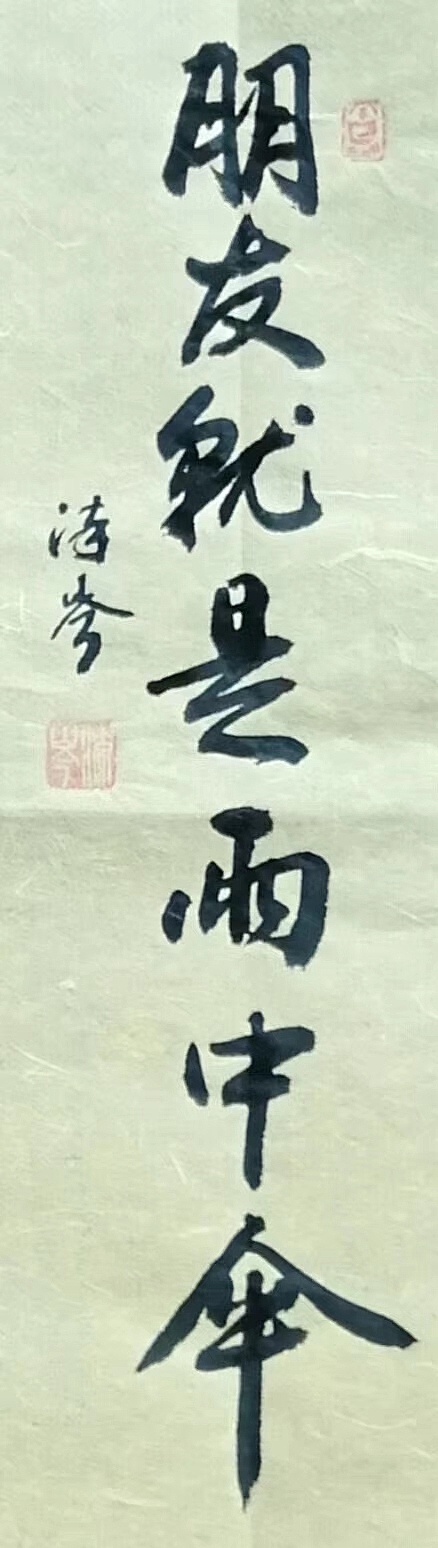 朋友就是雨中伞
涛岑